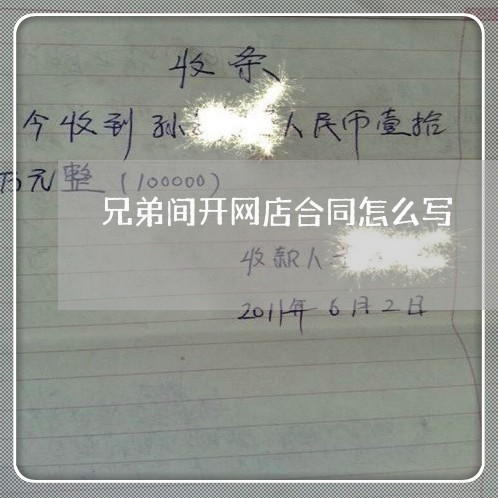 收条
今收到孙 人民币壹拾
万元整(100000)
兄弟间开网店合同怎么写
收款人
2011年6月2日